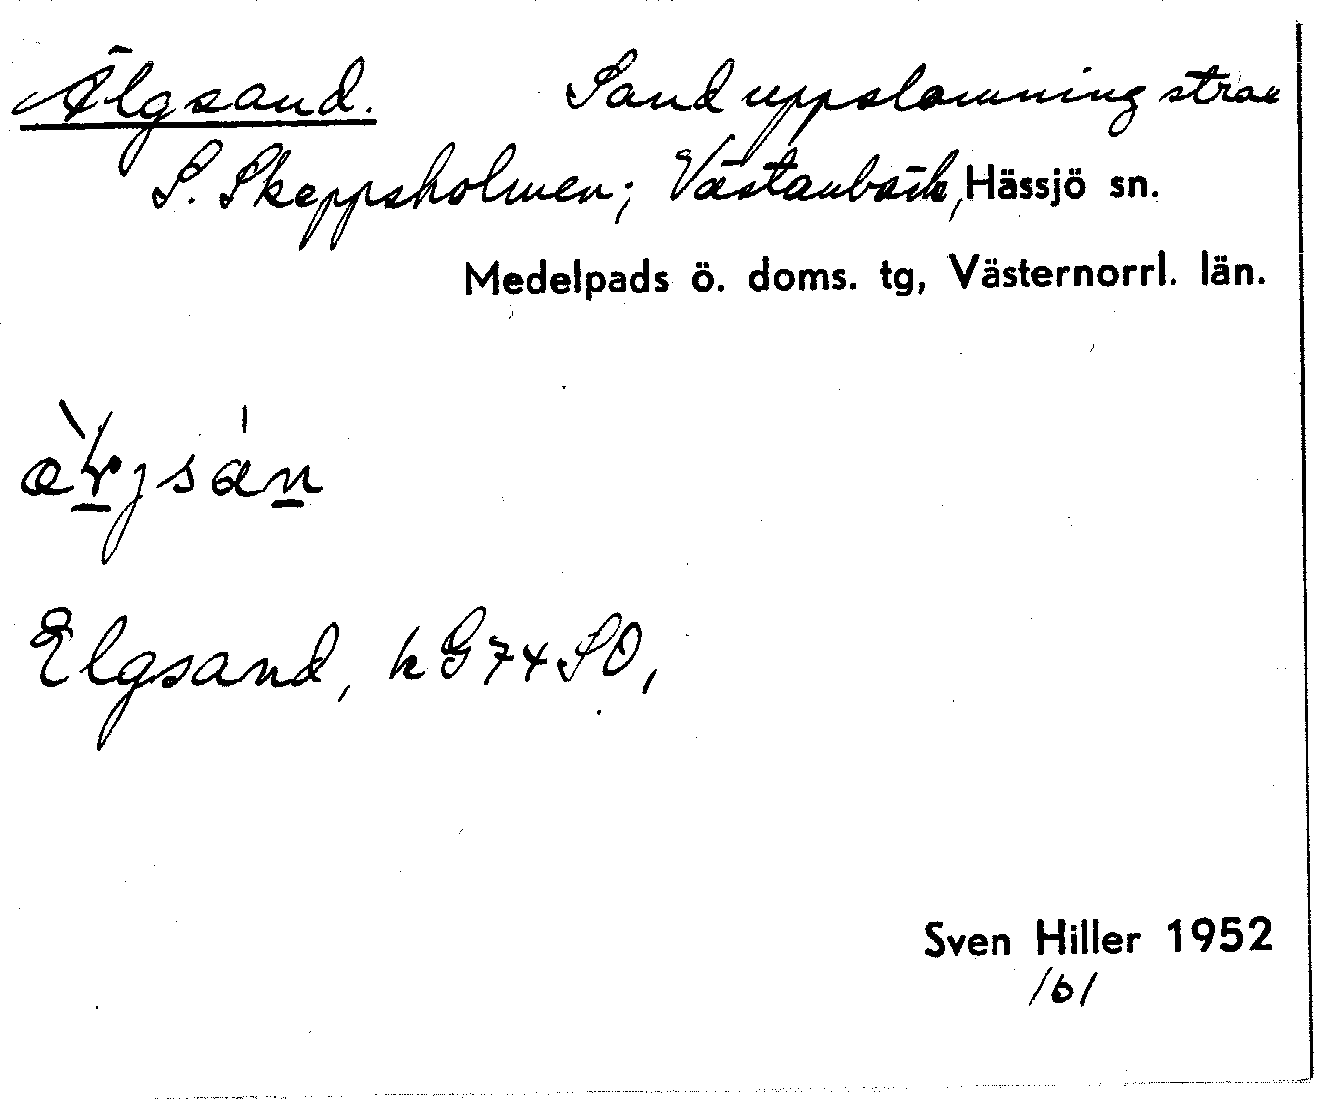 Älgsand. Sanduppslamning strax
S. Skeppsholmen; Västanbäck, Hässjö sn.
Medelpads ö. doms. tg, Västernorrl. län.
Elgsand, kG74SO,
Sven Hiller 1952